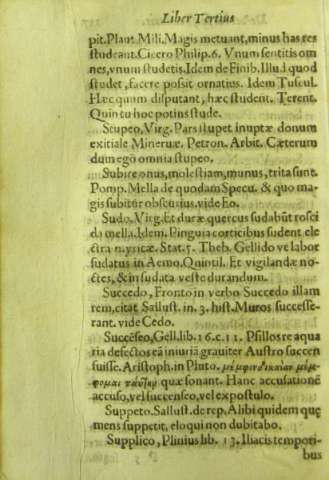 Liber Tertius
pit. Plaut. Mili. Magis metuant, minus has res
studeant. Cicero Philip. 6. Vnum sentitis om
nes, vnum studetis. Idem de Finib. Illud quod
studet, facere possit ornatius. Idem Tuscul.
Hæc quum disputant, hæc student. Terent.
Quin tu hoc potius stude.
Stupeo, Virg. Pars stupet inuptæ donum
exitiale Mineruæ. Petron. Arbit. Cæterum
dum ego omnia stupeo.
Subire onus, molestiam, munus, trita sunt.
Pomp. Mella de quodam Specu. & quo ma-
gis subitur obscurius. vide Eo.
Sudo. Virg. Et duræ quercus sudabūt rosci
da mella. Idem. Pinguia corticibus sudent ele
ctra myricæ. Stat. 5. Theb. Gellido velabor
sudatus in Aemo. Quintil. Et vigilandæ no-
ctes, & in sudata veste durandum.
Succedo, Fronto in verbo Succedo illam
rem, citat Sallust. in. 3. hist. Muros successe-
rant. vide Cedo.
Succēseo, Gell. lib. 16. c. 11. Psillos re aqua
ria defectos eā iniuriā grauiter Austro succen
suisse. Aristoph. in Pluto.
quæ sonant. Hanc accusationē
accuso, vel succenseo, vel expostulo.
Suppeto. Sallust. de rep. Alibi quidem quę
mens suppetit, eloqui non dubitabo.
Supplico, Plinius lib. 13. Iliacis tempori-
bus